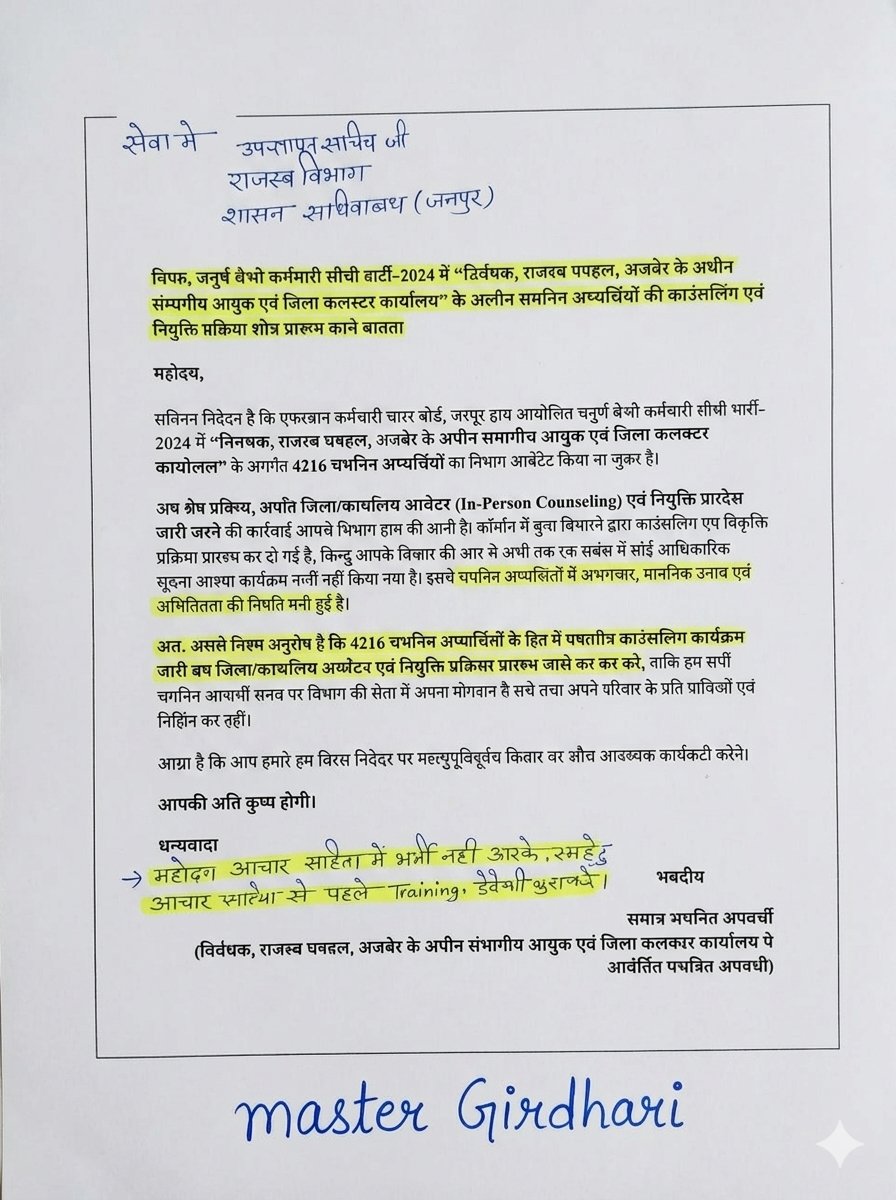 सेवा मे
उपस्तापून सचिच जी
राजस्ब विभाग
शासन सधिवाबथ (जनपुर)
विपफ, जनुर्ष बैभो कर्ममारी सीची बार्टी-2024 में “दिर्वघक, राजदब पपहल, अजबेर के अधीन
संम्पगीय आयुक एवं जिला कलस्टर कार्यालय” के अलीन समनिन अघ्यर्चियों की काउंसलिंग एवं
नियुक्ति प्रक्रिया शोत्र प्रारूम काने बातता
महोदय,
सविनन निदेदन है कि एफरब्रान कर्मचारी चारर बोर्ड, जरपूर हाय आयोलित चनुर्ण बेयी कर्मबारी सीयी भार्री-
2024 में “निनषक, राजरब घषहल, अजबेर के अपीन समागीच आयुक एवं जिला कलक्टर
कायोलल” के अगगीत 4216 चभनिन अप्यर्चियों का निभाग आबेंटेट किया ना जुकर है।
अष श्रेष प्रक्यि्य, अर्पात जिला/कायलिय आवेटर (In-Person Counseling) एवं नियुक्ति प्रारदेस
जारी जरने की कार्रवाई आपचे भिभाग हाम की आनी है। कॉर्मान में बुवा बियारने द्वारा काउंसलिग एप विकृकि
प्रक्रिमा प्रारडष कर दो गई है, किन्दु आपके विज्ञार की आर से अभी तक रक सबंस में सांई आधिकारिक
सूदना आश्या कार्यक्रम नर्जी नहीं किया नया है। इसचे चपनिन अप्यलितों में अभगब्रार, माननिक उनाव एवं
अभितितता की निषति मनी हुई है।
अत. अससे निश्म अनुरोष है कि 4216 चभनिन अप्यार्चिसों के हित में पषतात्रि काउंसलिग कार्यक्रम
जारी बष जिला/कायलिय अय्लेटव एवं नियुक्ति प्रकिसर प्राररूभ जासे कर कर करे, ताकि हम सपीं
चगनिन आयर्भी सनव पर विभाग की सेता में अपना मोगवान है सचे तचा अपने परिवार के प्रति प्राविओं एवं
निहिंन कर तहीं।
आग्रा है कि आप हमारे हम विरस निदेदर पर महत्युपूविवूर्वच किवार वर औच आडब्चक कार्यकटी करेने।
आपकी अति कुष्प होगी।
धन्यवादा
→ महोदग आचार साहिता में भर्भी नही आरके, रमहेदु
आचार सात्या से पहले Training, डेवेशी कुराक्ये।
भबदीय
समात्र भघनित अपवर्ची
(विर्वधक, राजस्ब घवहल, अजबेर के अपीन संभागीय आयुक एवं जिला कलकार कार्यालय पे
आवंर्तित पच्रत्रित अपवधी)
master Girdhari